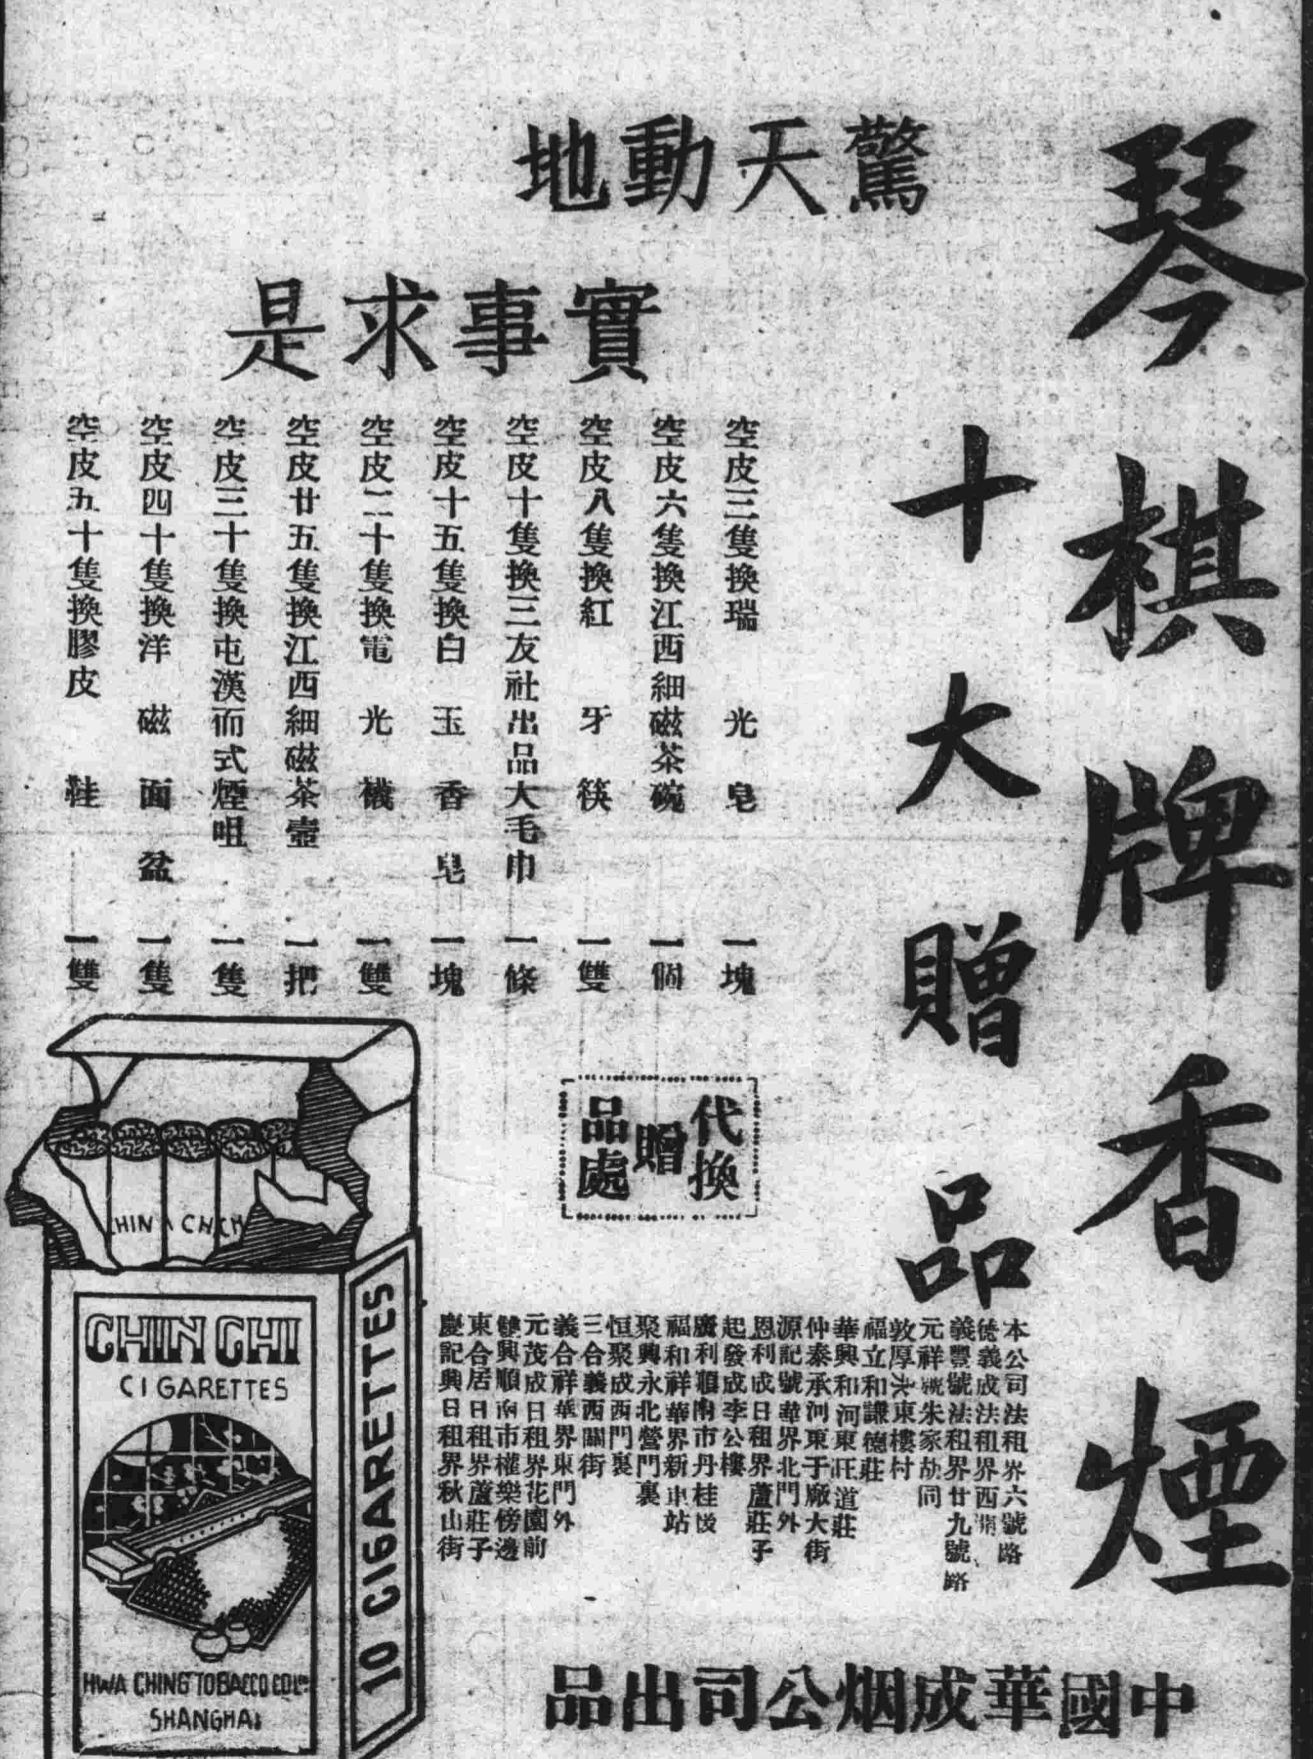 琴棋牌香煙
十大贈品
驚天動地
實事求是
空皮三隻換瑞光皂一塊
空皮六隻換江西細磁茶碗一個
空皮八隻換紅牙筷一雙
空皮十隻換三友社出品大毛巾一條
空皮十五隻換白玉香皂一塊
空皮二十隻換電光襪一雙
空皮廿五隻換江西細磁茶壺一把
空皮三十隻換屯漢而式煙咀一隻
空皮四十隻換洋磁面盆一隻
空皮五十隻換膠皮鞋一雙
代換贈品處
本公司法租界六號路
德義成法租界西開
義豐號法租界廿九號路
元祥號朱家胡同
敦厚永東樓村
福立和謙德莊
華興和河東旺道莊
仲泰承河東于廠大街
源記號華界北門外
恩利成日租界蘆莊子
起發成李公樓
廣利順南市丹桂後
福和祥華界新車站
聚興永北營門裏
恒聚成西門裏
三合義西關街
義合祥華界東門外
元茂成日租界花園前
雙興順南市權樂傍邊
東合居日租界蘆莊子
慶記興日租界秋山街
中國華成烟公司出品
CHIN CHI
CIGARETTES
HWA CHING TOBACCO CO LTD
SHANGHAI
10 CIGARETTES